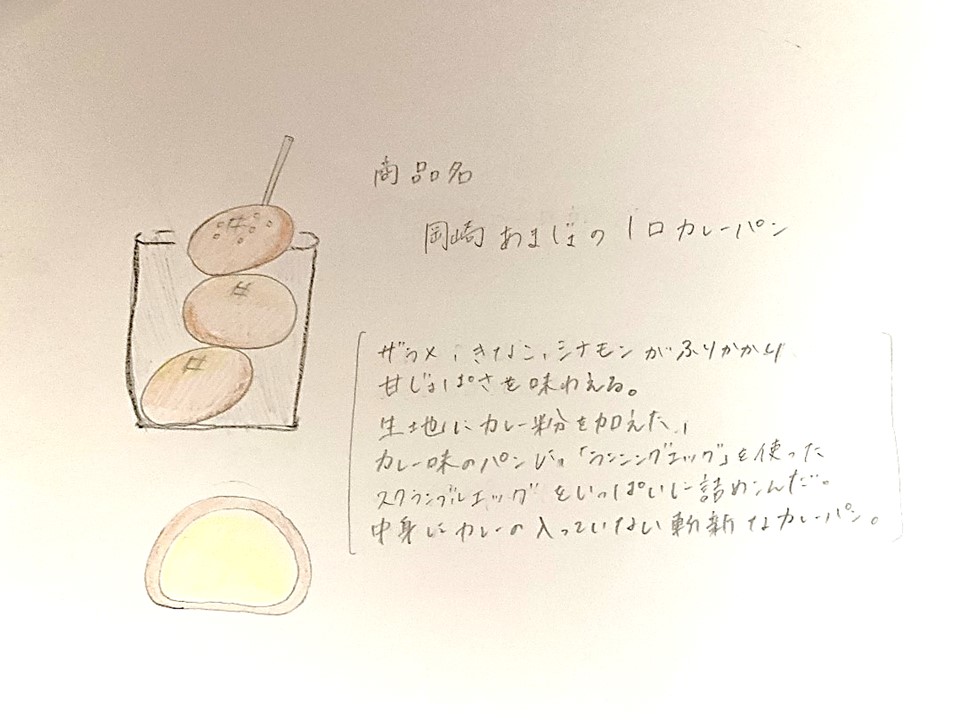 商品名
岡崎あまじょの1口カレーパン
ザラメ、きなこ、シナモンがふりかかり
甘じょぱさを味わえる。
生地にカレー粉を加えた、
カレー味のパンに「ランニングエッグ」を使った
スクランブルエッグをいっぱいに詰めこんだ。
中身にカレーの入っていない斬新なカレーパン。